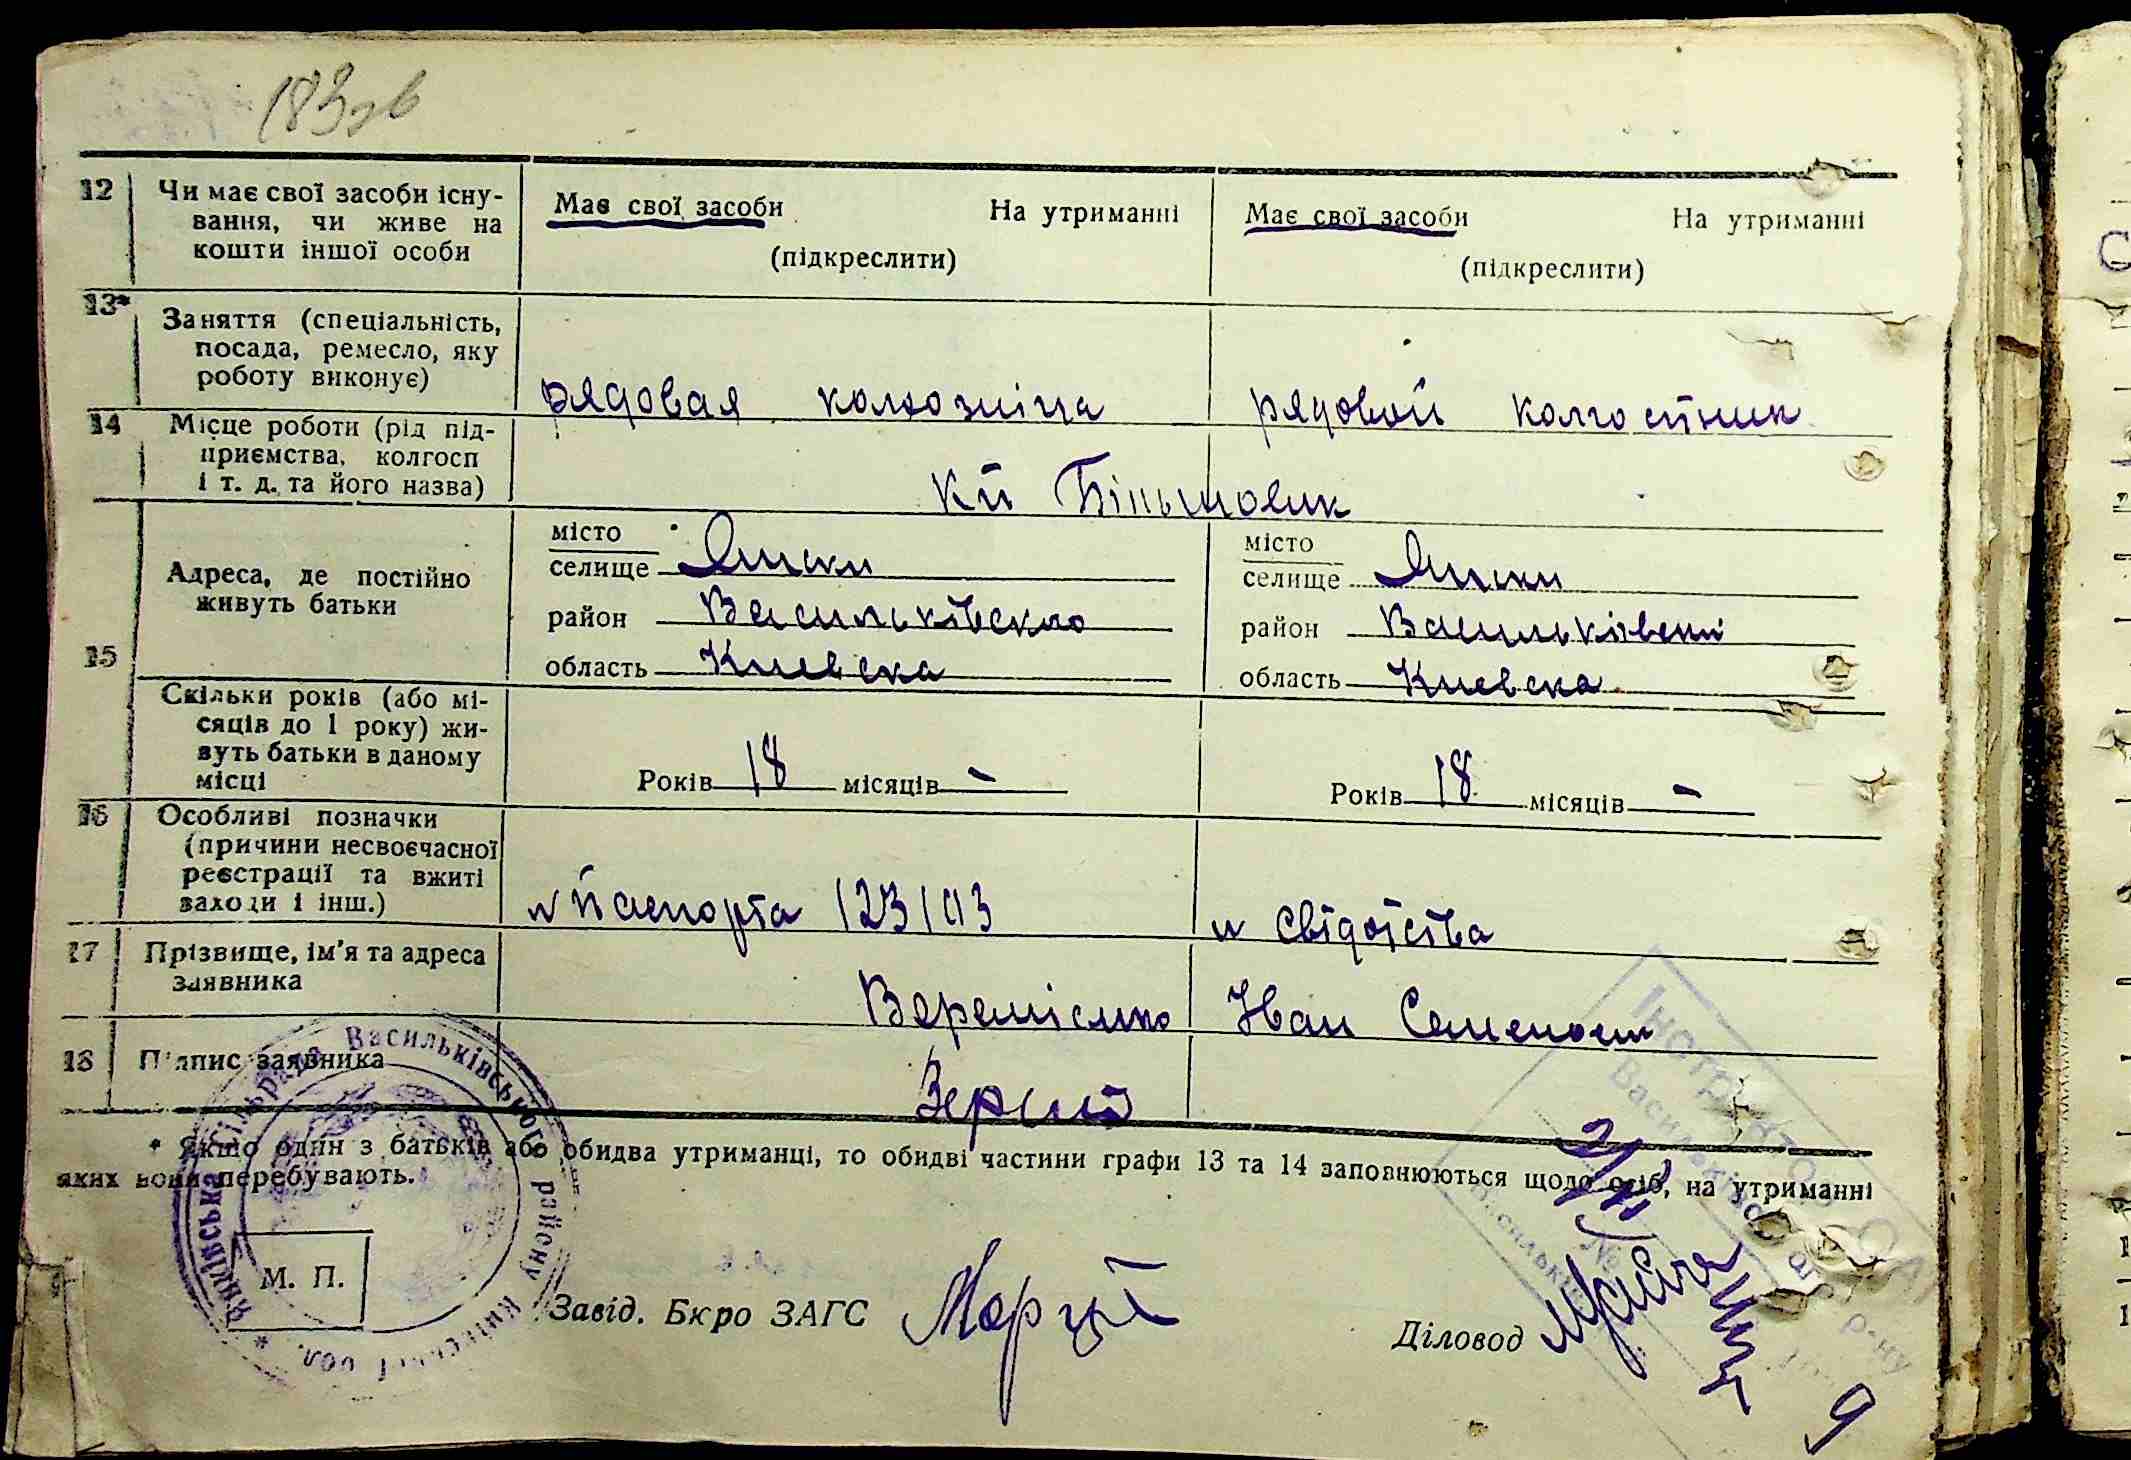 183зв
12 Чи має свої засоби існу-
вання, чи живе на
кошти іншої особи
Має свої засоби На утриманні
(підкреслити)
Має свої засоби На утриманні
(підкреслити)
13* Заняття (спеціальність,
посада, ремесло, яку
роботу виконує)
рядовая колхозніца
рядовой колгоспник
14 Місце роботи (рід під-
приємства, колгосп
і т. д. та його назва)
Більшовик
15 Адреса, де постійно
живуть батьки
місто
селище Яцьки
район Васильківского
область Киевска
місто
селище Яцьки
район Васильківский
область Киевска
Скільки років (або мі-
сяців до 1 року) жи-
вуть батьки в даному
місці
Років 18 місяців -
Років 18 місяців -
16 Особливі позначки
(причини несвоєчасної
реєстрації та вжиті
заходи і інш.)
№ паспорта
№ свідотства
17 Прізвище, ім'я та адреса
заявника
Веремієнко Іван Семенович
18 Підпис заявника
* Якщо один з батьків або обидва утриманці, то обидві частини графи 13 та 14 заповнюються щодо осіб, на утриманні
яких вони перебувають.
М. П.
Завід. Бюро ЗАГС
Діловод
сільрада Васильківського району Київської обл.
9